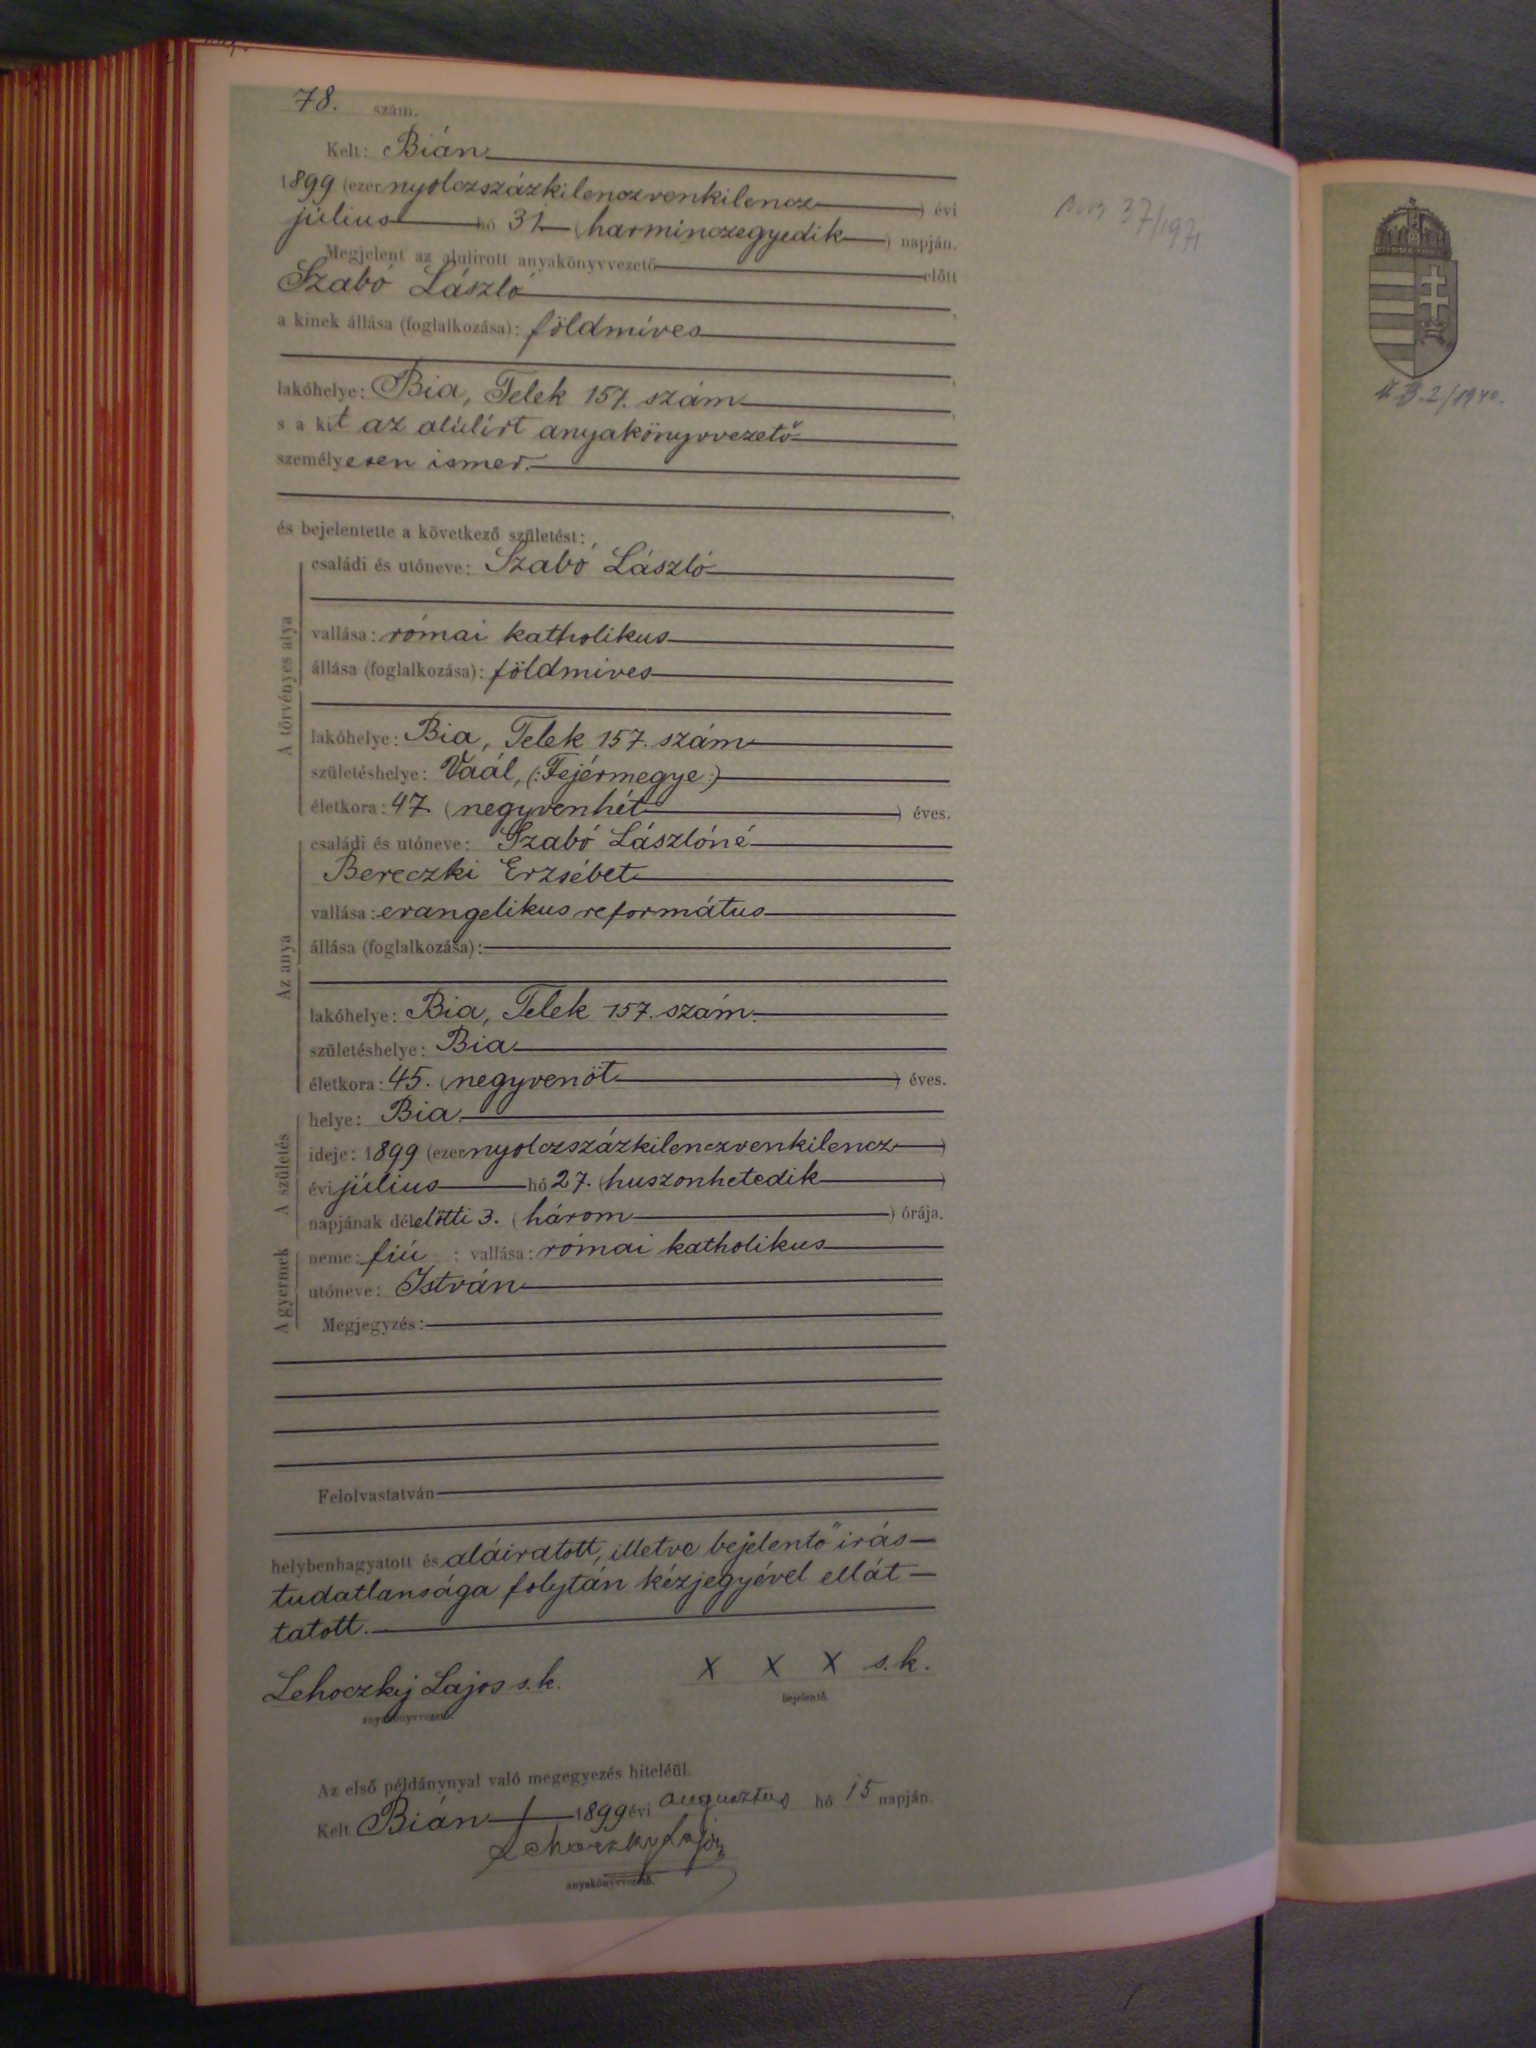 78. szám.
Kelt: Bián
1899 (ezer nyolczszázkilenczvenkilencz) évi
július hó 31 (harminczegyedik) napján.
Megjelent az alulirott anyakönyvvezető előtt
Szabó László,
a kinek állása (foglalkozása): földmíves
,
lakóhelye: Bia, Telek 157. szám,
s a kit az alúlírt anyakönyvvezető
személyesen ismer.
,
és bejelentette a következő születést:
A törvényes atya
családi és utóneve: Szabó László
vallása: római katholikus
állása (foglalkozása): földmíves
lakóhelye: Bia, Telek 157. szám
születéshelye: Vaál, (:Fejérmegye:)
életkora: 47 (negyvenhét) éves.
Az anya
családi és utóneve: Szabó Lászlóné
Bereczki Erzsébet
vallása: evangelikus református
állása (foglalkozása):
lakóhelye: Bia, Telek 157. szám.
születéshelye: Bia
életkora: 45. (negyvenöt) éves.
A születés
helye: Bia.
ideje: 1899 (ezer nyolczszázkilenczvenkilencz)
évi július hó 27. (huszonhetedik)
napjának délelőtti 3. (három) órája.
A gyermek
neme: fiú : vallása: római katholikus
utóneve: István
Megjegyzés:
Felolvastatván
helybenhagyatott és aláiratott, illetve bejelentő irás-
tudatlansága folytán kézjegyével ellát-
tatott.
Lehoczky Lajos s.k. X X X s.k.
anyakönyvvezető. bejelentő.
Az első példánynyal való megegyezés hiteléül.
Kelt Bián 1899 évi augusztus hó 15 napján.
Lehoczky Lajos
anyakönyvvezető.
37/1971
2/1940.